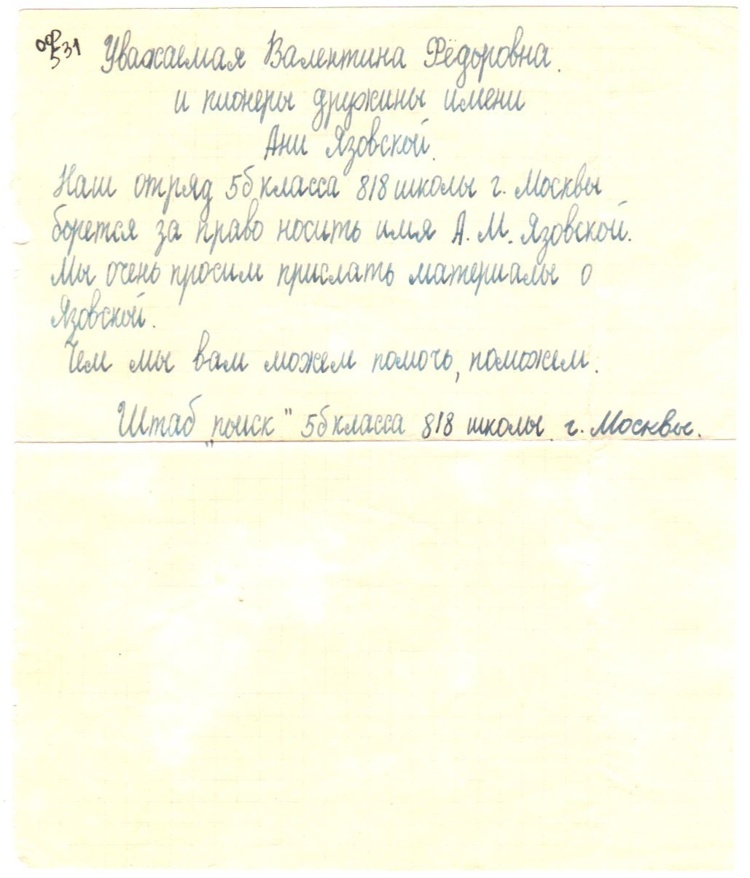 оф 531
Уважаемая Валентина Фёдоровна.
и пионеры дружины имени
Ани Язовской.
Наш отряд 5б класса 818 школы г. Москвы
борется за право носить имя А. М. Язовской.
Мы очень просим прислать материалы о
Язовской.
Чем мы вам можем помочь, поможем.
Штаб "поиск" 5б класса 818 школы. г. Москвы.